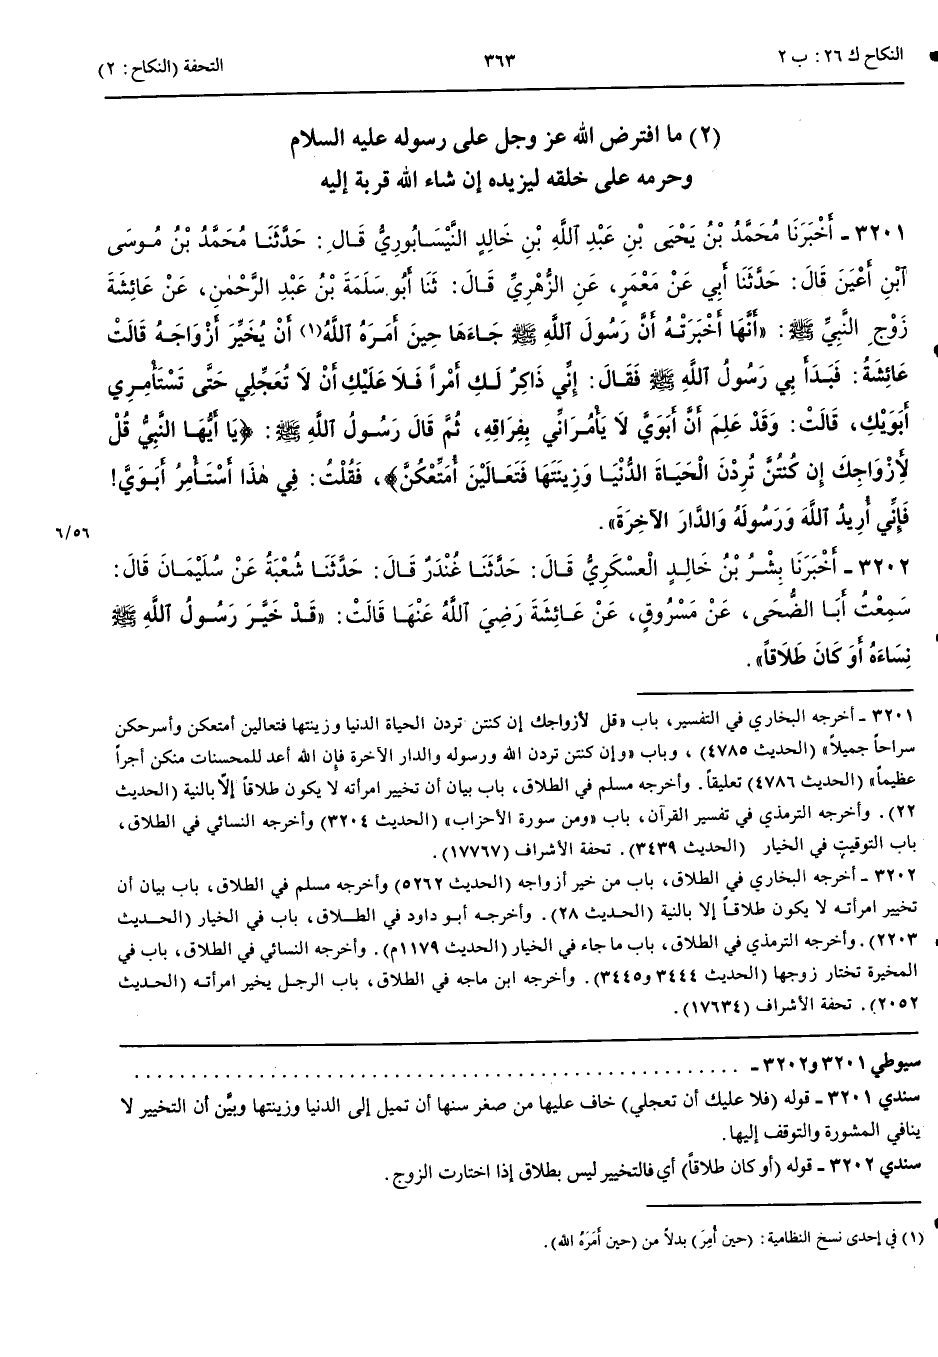 النكاح ك ٢٦: ب ٢
٣٦٣
التحفة (النكاح: ٢)
(٢) ما افترض الله عز وجل على رسوله عليه السلام
وحرمه على خلقه ليزيده إن شاء الله قربة إليه
٣٢٠١ - أَخْبَرَنَا مُحَمَّدُ بْنُ يَحْيَى بْنِ عَبْدِ اللَّهِ بْنِ خَالِدٍ النَّيْسَابُورِيُّ قَالَ: حَدَّثَنَا مُحَمَّدُ بْنُ مُوسَى
ابْنِ أَعْيَنَ قَالَ: حَدَّثَنَا أَبِي عَنْ مَعْمَرٍ، عَنِ الزُّهْرِيِّ قَالَ: ثَنَا أَبُو سَلَمَةَ بْنُ عَبْدِ الرَّحْمٰنِ، عَنْ عَائِشَةَ
زَوْجِ النَّبِيِّ ﷺ: «أَنَّهَا أَخْبَرَتْهُ أَنَّ رَسُولَ اللَّهِ ﷺ جَاءَهَا حِينَ أَمَرَهُ اللَّهُ(١) أَنْ يُخَيِّرَ أَزْوَاجَهُ قَالَتْ
عَائِشَةُ: فَبَدَأَ بِي رَسُولُ اللَّهِ ﷺ فَقَالَ: إِنِّي ذَاكِرٌ لَكِ أَمْراً فَلَا عَلَيْكِ أَنْ لَا تُعَجِّلِي حَتَّى تَسْتَأْمِرِي
أَبَوَيْكِ، قَالَتْ: وَقَدْ عَلِمَ أَنَّ أَبَوَيَّ لَا يَأْمُرَانِّي بِفِرَاقِهِ، ثُمَّ قَالَ رَسُولُ اللَّهِ ﷺ: ﴿يَا أَيُّهَا النَّبِيُّ قُلْ
لِأَزْوَاجِكَ إِن كُنتُنَّ تُرِدْنَ الْحَيَاةَ الدُّنْيَا وَزِينَتَهَا فَتَعَالَيْنَ أُمَتِّعْكُنَّ﴾، فَقُلْتُ: فِي هٰذَا أَسْتَأْمِرُ أَبَوَيَّ!
فَإِنِّي أُرِيدُ اللَّهَ وَرَسُولَهُ وَالدَّارَ الآخِرَةَ».
٦/٥٦
٣٢٠٢ - أَخْبَرَنَا بِشْرُ بْنُ خَالِدٍ الْعَسْكَرِيُّ قَالَ: حَدَّثَنَا غُنْدَرٌ قَالَ: حَدَّثَنَا شُعْبَةُ عَنْ سُلَيْمَانَ قَالَ:
سَمِعْتُ أَبَا الضُّحَى، عَنْ مَسْرُوقٍ، عَنْ عَائِشَةَ رَضِيَ اللَّهُ عَنْهَا قَالَتْ: «قَدْ خَيَّرَ رَسُولُ اللَّهِ ﷺ
نِسَاءَهُ أَوَ كَانَ طَلَاقاً».
٣٢٠١ - أخرجه البخاري في التفسير، باب «قل لأزواجك إن كنتن تردن الحياة الدنيا وزينتها فتعالين أمتعكن وأسرحكن
سراحاً جميلاً» (الحديث ٤٧٨٥) ، وباب «وإن كنتن تردن الله ورسوله والدار الآخرة فإن الله أعد للمحسنات منكن أجراً
عظيماً» (الحديث ٤٧٨٦) تعليقاً. وأخرجه مسلم في الطلاق، باب بيان أن تخيير امرأته لا يكون طلاقاً إلّا بالنية (الحديث
٢٢). وأخرجه الترمذي في تفسير القرآن، باب «ومن سورة الأحزاب» (الحديث ٣٢٠٤) وأخرجه النسائي في الطلاق،
باب التوقيت في الخيار (الحديث ٣٤٣٩). تحفة الأشراف (١٧٧٦٧).
٣٢٠٢ - أخرجه البخاري في الطلاق، باب من خير أزواجه (الحديث ٥٢٦٢) وأخرجه مسلم في الطلاق، باب بيان أن
تخيير امرأته لا يكون طلاقاً إلا بالنية (الحديث ٢٨). وأخرجه أبو داود في الطلاق، باب في الخيار (الحديث
٢٢٠٣). وأخرجه الترمذي في الطلاق، باب ما جاء في الخيار (الحديث ١١٧٩م). وأخرجه النسائي في الطلاق، باب في
المخيرة تختار زوجها (الحديث ٣٤٤٤ و٣٤٤٥). وأخرجه ابن ماجه في الطلاق، باب الرجل يخير امرأته (الحديث
٢٠٥٢). تحفة الأشراف (١٧٦٣٤).
سيوطي ٣٢٠١ و٣٢٠٢ - . . . . . . . . . . . . . . . . . . . . . . . . . . . . . . . . . . . . . . . . . . . .
سندي ٣٢٠١ - قوله (فلا عليك أن تعجلي) خاف عليها من صغر سنها أن تميل إلى الدنيا وزينتها وبيَّن أن التخيير لا
ينافي المشورة والتوقف إليها.
سندي ٣٢٠٢ - قوله (أو كان طلاقاً) أي فالتخيير ليس بطلاق إذا اختارت الزوج.
(١) في إحدى نسخ النظامية: (حين أُمِرَ) بدلاً من (حين أَمَرَهُ الله).